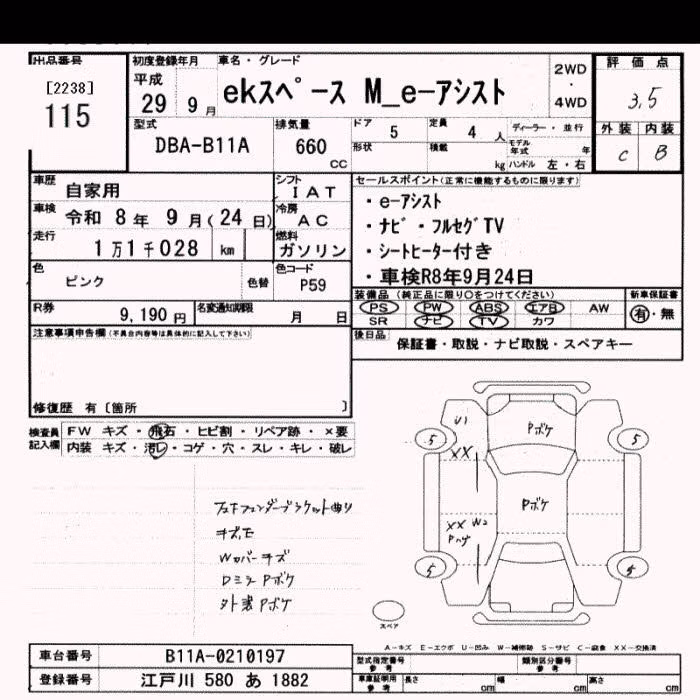 出品番号
[2238]
115
初度登録年月
平成
29 9 月
車名・グレード
ekスペース M_e-アシスト
2WD
・
4WD
評価点
3.5
外装 内装
C B
型式
DBA-B11A
排気量
660
cc
ドア
5
定員
4 人
形状
積載
kg
ディーラー・並行
モデル年式 年
ハンドル 左・右
車歴
自家用
シフト
I A T
車検
令和 8 年 9 月( 24 日)
冷房
A C
走行
1万1千028 km
燃料
ガソリン
色
ピンク
色替
色コード
P59
R券
9,190 円
名変通知期限
月 日
セールスポイント(正常に機能するものに限ります)
・e-アシスト
・ナビ・フルセグTV
・シートヒーター付き
・車検R8年9月24日
装備品 (純正品に限り○をつけてください)
PS PW ABS エアB AW
SR ナビ TV カワ
新車保証書
有・無
後日品
保証書・取説・ナビ取説・スペアキー
注意事項申告欄(不具合内容等は具体的に記入して下さい)
修復歴 有〔箇所 〕
検査員
記入欄
FW キズ・飛石・ヒビ割・リペア跡・×要
内装 キズ・汚レ・コゲ・穴・スレ・キレ・破レ
左Fフェンダーブラケット曲り
キズ.モ
Wカバーキズ
Dミラ Pボケ
外装 Pボケ
U1
Pボケ
5
5
XX
Pボケ
XX W2
Pハゲ
5
5
スペア
A-キズ E-エクボ U-凹み W-補修跡 S-サビ C-腐食 XX-交換済
車台番号
B11A-0210197
登録番号
江戸川 580 あ 1882
型式指定番号
参考
類別区分番号
参考
車庫証明用
参考
長さ cm
幅 cm
高さ cm